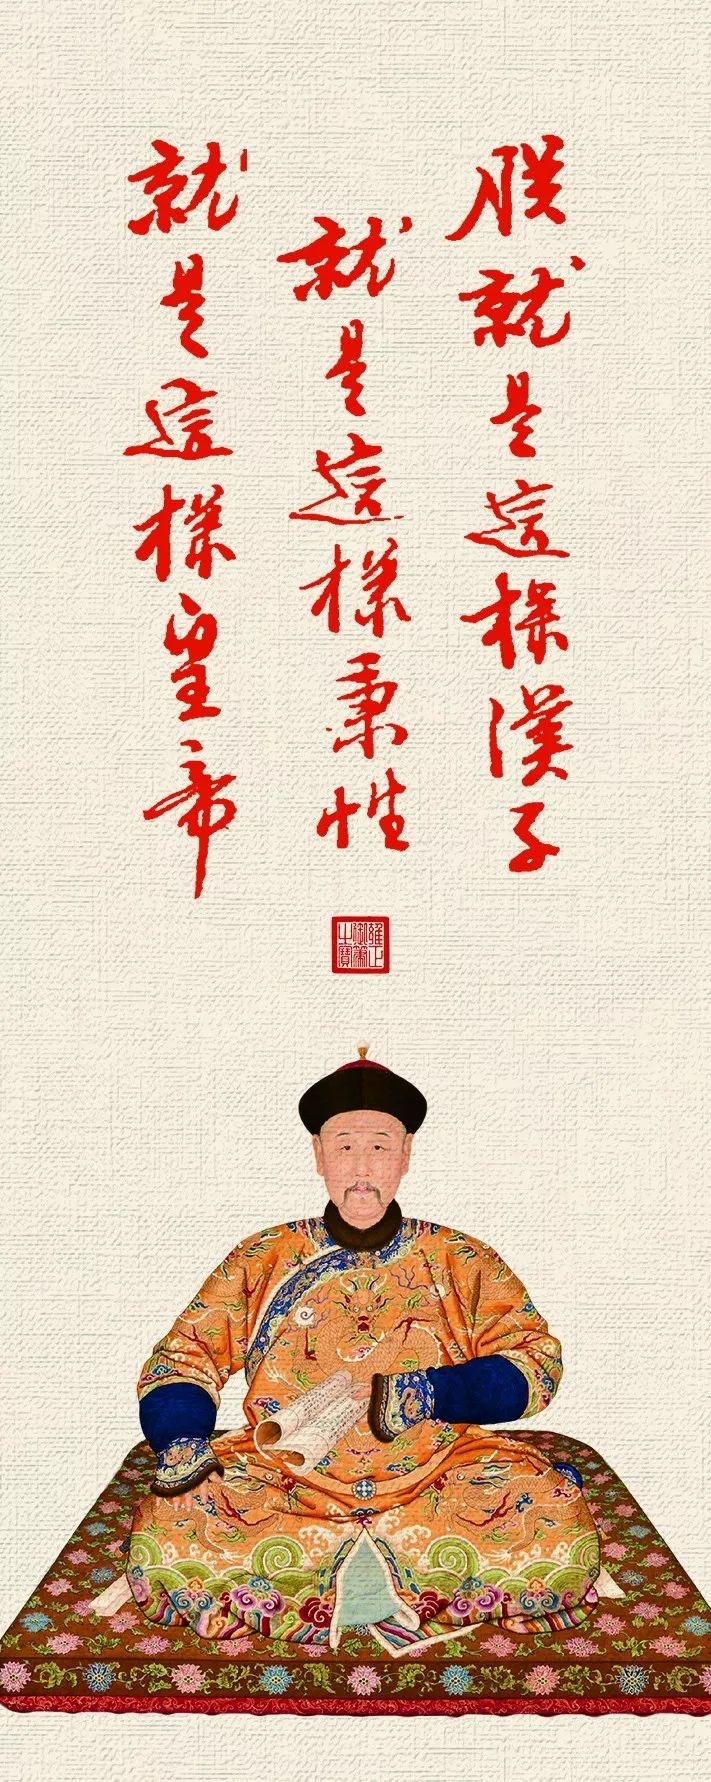 朕就是這樣漢子
就是這樣秉性
就是這樣皇帝
雍正
御筆
之寶